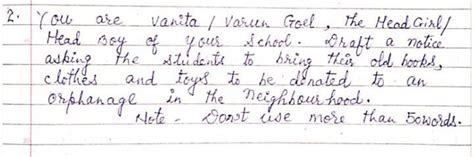 2. You are Vanita / Varun Goel, the Head Girl/
Head Boy of your School. Draft a notice
asking the students to bring their old books,
clothes and toys to be donated to an
orphanage in the neighbourhood.
Note - Don't use more than 50words.